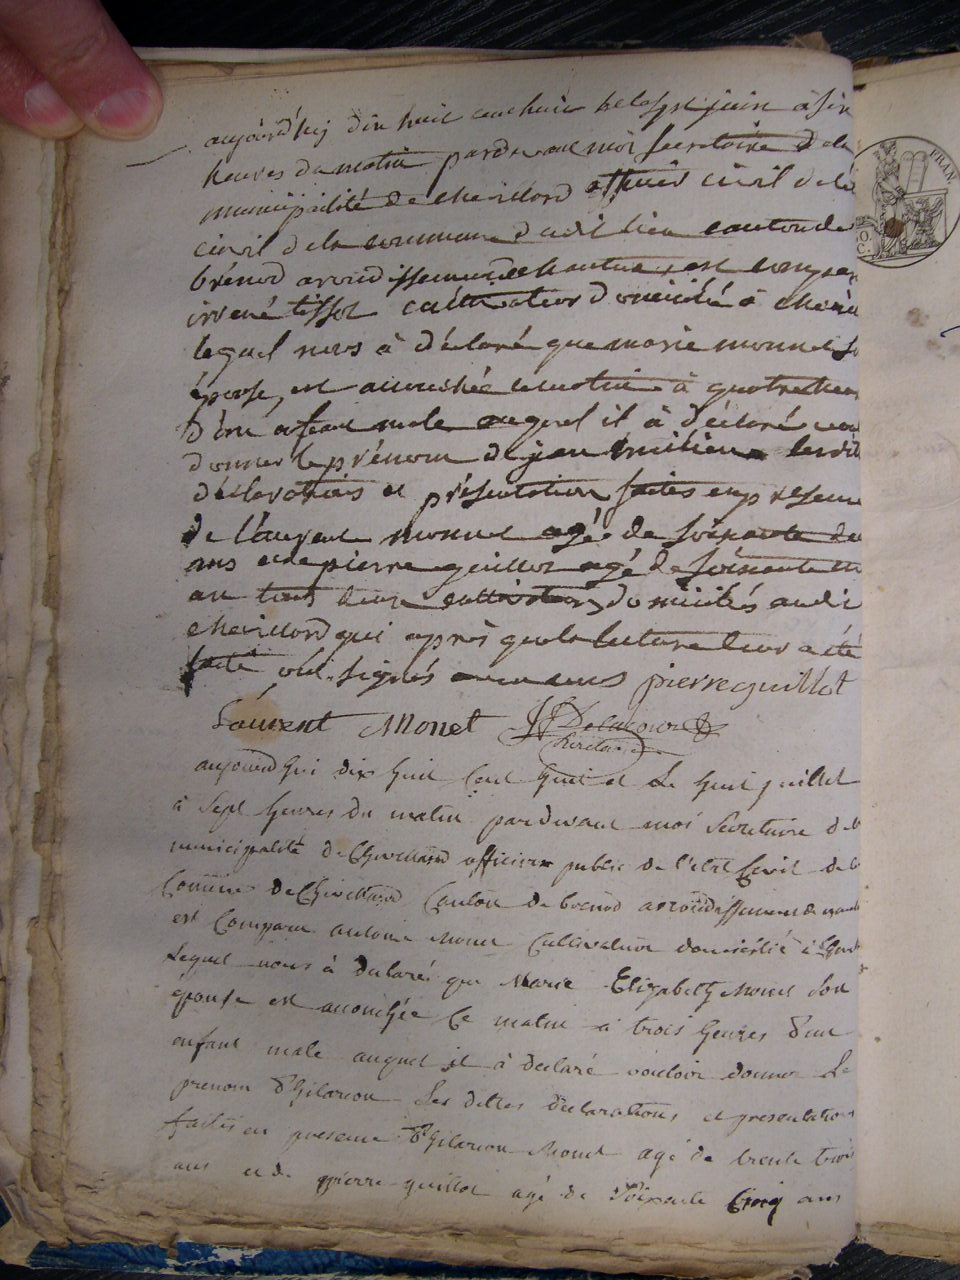 aujourd'huj dix huit cent huit le sept juin à six
heures du matin pardevant moi secretaire de la
municipalité de chevillard officier civil de la
civil de la commune dudit lieu canton de
brénod arondissement de nantua, est comparu
irréné tissot cultivateur domicilié à chevill
lequel nous à déclaré que marie monnet so
épouse, est accouchée ce matin à quatre heur
d'un enfant male auquel il à déclaré vou
donner le prénom de jean les dit
déclarations et présentation faites en presence
de laurent monnet agé de soixante
ans et de pierre guillot agé de soixante
an tous deux cultivateurs domiciliés audit
chevillard qui après que la lecture leur a été
faite ont signés avec nous pierre guillot
Laurent Monet Delacour
secretaire
aujourd'hui dix huit Cent huit et Le huit juillet
à sept heures du matin pardevant moi Secretaire de l
municipalité de Chevillard officier public de l'etat Civil de l
Commune de Chevillard Canton de brenod arrondissement de nantu
est Comparu antoine Monet Cultivateur domicilié à Chev
Lequel nous à declaré que Marie Elizabeth Monet Son
épouse est accouchée Ce matin à trois heures d'un
enfant male auquel il à declaré vouloir donner Le
prenom d'hilarion Les dittes declarations et presentations
faites en presence d'hilarion Monet agé de trente trois
ans et de pierre guillot agé de soixante Cinq ans
FRAN